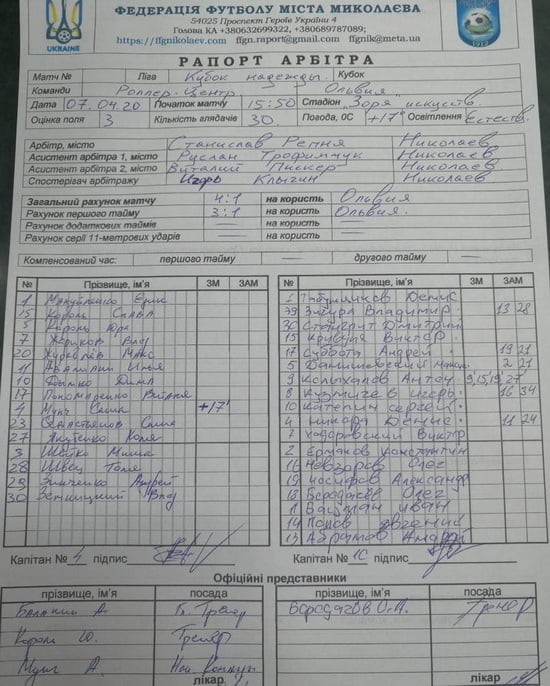 ФЕДЕРАЦІЯ ФУТБОЛУ МІСТА МИКОЛАЄВА
54025 Проспект Героїв України 4
Голова КА +380632699322, +380689787089;
https://ffgnikolaev.com ffgn.raport@gmail.com ffgnik@meta.ua
UKRAINE
РАПОРТ АРБІТРА
Матч № Ліга Кубок надежды. Кубок
Команди Роллер-Центр. Ольвия
Дата 07.04.20 Початок матчу 15:50 Стадіон "Зоря искусств.
Оцінка поля 3 Кількість глядачів 30 Погода, 0С +17° Освітлення Естеств.
Арбітр, місто Станислав Репня Николаев
Асистент арбітра 1, місто Руслан Трофимчук Николаев
Асистент арбітра 2, місто Виталий Пискер Николаев
Спостерігач арбітражу Игорь Клычин Николаев
Загальний рахунок матчу 4:1 на користь Ольвия
Рахунок першого тайму 3:1 на користь Ольвия.
Рахунок додаткових таймів — на користь —
Рахунок серії 11-метрових ударів — на користь —
Компенсований час: першого тайму — другого тайму —
№ Прізвище, ім'я ЗМ ЗАМ
1 Ерик
15 Король Слава
5 Король Юра
7 Жериков Влад
20 Журавлёв Макс
11 Илья
10 Дышко Дима
17 Пономаренко Виталя
4 Мунг Саша +17'
23 Севастьянов Саша
27 Якутенко Коля
3 Шейко Миша
28 Швец Толя
29 Зинченко Андрей
30 Влад
№ Прізвище, ім'я ЗМ ЗАМ
Денис
29 Зигура Владимир 13 28
30 Дмитрий
15 Кривуля Виктор
17 Суббота Андрей 19 21
5 2 21
9 Колыхалов Антон 9,15,19' 27
8 Кузмичев Игорь 16 34
10 Катепин Сергей
4 Никора Денис 11 24
7 Ходоровский Виктор
2 Ермаков Константин
16 Невзоров Олег
19 Иосифов Александр
18 Бородаев Олег
1 Бацман Иван
14 Попов Евгений
13 Абрамов Андрей
Капітан № 4 підпис
Капітан № 10 підпис
Офіційні представники
прізвище, ім'я посада
Балакин А. Гл. Тренер
Король Ю. Тренер
Мунг А. Нач. Команды
лікар
прізвище, ім'я посада
Бородачов О.А. Тренер
лікар